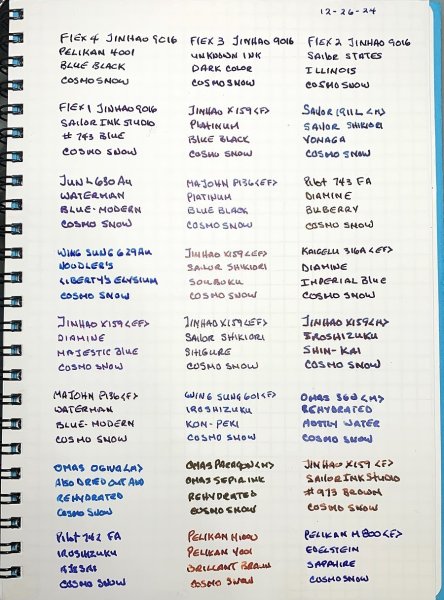 12-26-24
FLEX 4 JINHAO 9016
PELIKAN 4001
BLUE BLACK
COSMO SNOW
FLEX 3 JINHAO 9016
UNKNOWN INK
DARK COLOR
COSMO SNOW
FLEX 2 JINHAO 9016
SAILOR STATES
ILLINOIS
COSMO SNOW
FLEX 1 JINHAO 9016
SAILOR INK STUDIO
# 743 BLUE
COSMO SNOW
JINHAO X159 <F>
PLATINUM
BLUE BLACK
COSMO SNOW
SAILOR 1911L <M>
SAILOR SHIKIORI
YONAGA
COSMO SNOW
JUN L 630 Au
WATERMAN
BLUE-MODERN
COSMO SNOW
MAJOHN P136 <EF>
PLATINUM
BLUE BLACK
COSMO SNOW
PILOT 743 FA
DIAMINE
BILBERRY
COSMO SNOW
WING SUNG 629 Au
NOODLER'S
LIBERTY'S ELYSIUM
COSMO SNOW
JINHAO X159 <EF>
SAILOR SHIKIORI
SOUBOKU
COSMO SNOW
KAIGELU 316A <EF>
DIAMINE
IMPERIAL BLUE
COSMO SNOW
JINHAO X159 <EF>
DIAMINE
MAJESTIC BLUE
COSMO SNOW
JINHAO X159 <EF>
SAILOR SHIKIORI
SHIGURE
COSMO SNOW
JINHAO X159 <M>
IROSHIZUKU
SHIN-KAI
COSMO SNOW
MAJOHN P136 <F>
WATERMAN
BLUE-MODERN
COSMO SNOW
WING SUNG 601 <F>
IROSHIZUKU
KON-PEKI
COSMO SNOW
OMAS 360 <M>
REHYDRATED
MOSTLY WATER
COSMO SNOW
OMAS OGIVA <M>
ALSO DRIED OUT AND
REHYDRATED
COSMO SNOW
OMAS PARAGON <M>
OMAS SEPIA INK
REHYDRATED
COSMO SNOW
JINHAO X159 <F>
SAILOR INK STUDIO
# 973 BROWN
COSMO SNOW
PILOT 742 FA
IROSHIZUKU
AJISAI
COSMO SNOW
PELIKAN M1000
PELIKAN 4001
BRILLANT BRAUN
COSMO SNOW
PELIKAN M800 <F>
EDELSTEIN
SAPPHIRE
COSMO SNOW